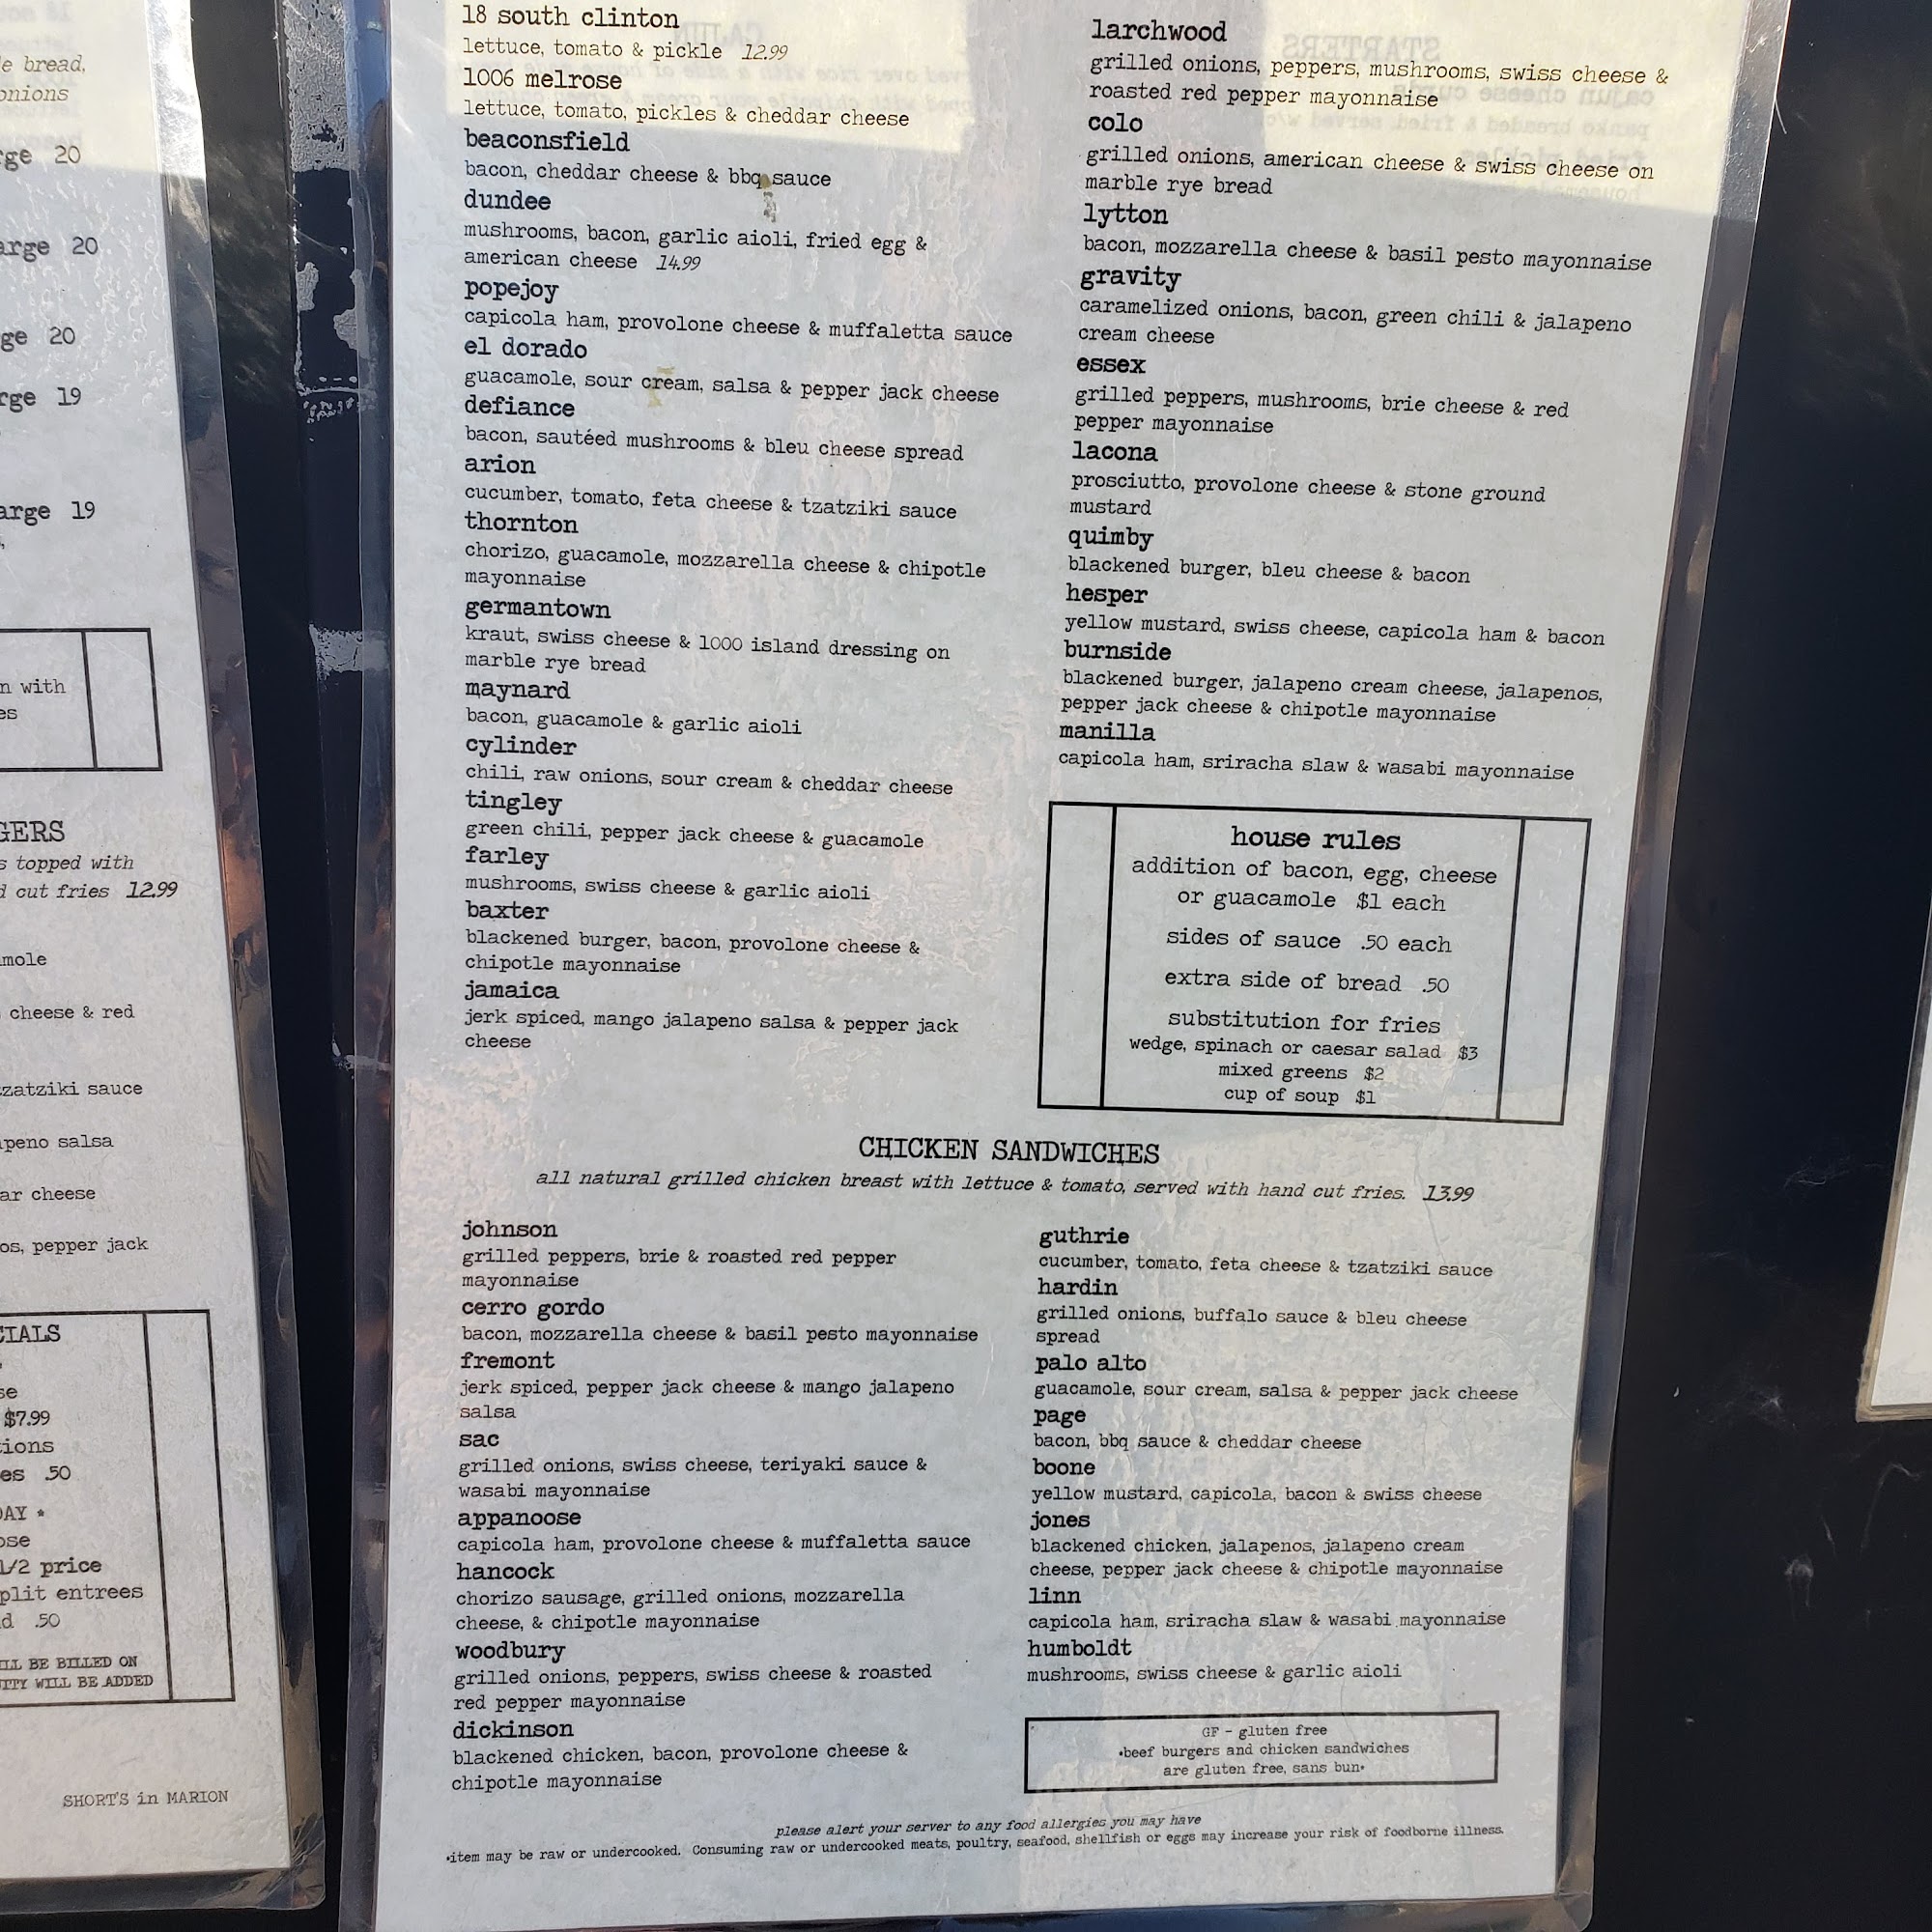 e bread,
onions
rge 20
arge 20
ge 20
rge 19
arge 19
n with
es
GERS
s topped with
d cut fries 12.99
mole
cheese & red
tzatziki sauce
peno salsa
ar cheese
os, pepper jack
CIALS
se
$7.99
tions
es .50
DAY *
ose
1/2 price
plit entrees
d .50
ILL BE BILLED ON
UITY WILL BE ADDED
SHORT'S in MARION
18 south clinton
lettuce, tomato & pickle 12.99
1006 melrose
lettuce, tomato, pickles & cheddar cheese
beaconsfield
bacon, cheddar cheese & bbq sauce
dundee
mushrooms, bacon, garlic aioli, fried egg &
american cheese 14.99
popejoy
capicola ham, provolone cheese & muffaletta sauce
el dorado
guacamole, sour cream, salsa & pepper jack cheese
defiance
bacon, sautéed mushrooms & bleu cheese spread
arion
cucumber, tomato, feta cheese & tzatziki sauce
thornton
chorizo, guacamole, mozzarella cheese & chipotle
mayonnaise
germantown
kraut, swiss cheese & 1000 island dressing on
marble rye bread
maynard
bacon, guacamole & garlic aioli
cylinder
chili, raw onions, sour cream & cheddar cheese
tingley
green chili, pepper jack cheese & guacamole
farley
mushrooms, swiss cheese & garlic aioli
baxter
blackened burger, bacon, provolone cheese &
chipotle mayonnaise
jamaica
jerk spiced, mango jalapeno salsa & pepper jack
cheese
larchwood
grilled onions, peppers, mushrooms, swiss cheese &
roasted red pepper mayonnaise
colo
grilled onions, american cheese & swiss cheese on
marble rye bread
lytton
bacon, mozzarella cheese & basil pesto mayonnaise
gravity
caramelized onions, bacon, green chili & jalapeno
cream cheese
essex
grilled peppers, mushrooms, brie cheese & red
pepper mayonnaise
lacona
prosciutto, provolone cheese & stone ground
mustard
quimby
blackened burger, bleu cheese & bacon
hesper
yellow mustard, swiss cheese, capicola ham & bacon
burnside
blackened burger, jalapeno cream cheese, jalapenos,
pepper jack cheese & chipotle mayonnaise
manilla
capicola ham, sriracha slaw & wasabi mayonnaise
house rules
addition of bacon, egg, cheese
or guacamole $1 each
sides of sauce .50 each
extra side of bread .50
substitution for fries
wedge, spinach or caesar salad $3
mixed greens $2
cup of soup $1
CHICKEN SANDWICHES
all natural grilled chicken breast with lettuce & tomato, served with hand cut fries. 13.99
johnson
grilled peppers, brie & roasted red pepper
mayonnaise
cerro gordo
bacon, mozzarella cheese & basil pesto mayonnaise
fremont
jerk spiced, pepper jack cheese & mango jalapeno
salsa
sac
grilled onions, swiss cheese, teriyaki sauce &
wasabi mayonnaise
appanoose
capicola ham, provolone cheese & muffaletta sauce
hancock
chorizo sausage, grilled onions, mozzarella
cheese, & chipotle mayonnaise
woodbury
grilled onions, peppers, swiss cheese & roasted
red pepper mayonnaise
dickinson
blackened chicken, bacon, provolone cheese &
chipotle mayonnaise
guthrie
cucumber, tomato, feta cheese & tzatziki sauce
hardin
grilled onions, buffalo sauce & bleu cheese
spread
palo alto
guacamole, sour cream, salsa & pepper jack cheese
page
bacon, bbq sauce & cheddar cheese
boone
yellow mustard, capicola, bacon & swiss cheese
jones
blackened chicken, jalapenos, jalapeno cream
cheese, pepper jack cheese & chipotle mayonnaise
linn
capicola ham, sriracha slaw & wasabi mayonnaise
humboldt
mushrooms, swiss cheese & garlic aioli
GF - gluten free
*beef burgers and chicken sandwiches
are gluten free, sans bun*
please alert your server to any food allergies you may have
*item may be raw or undercooked. Consuming raw or undercooked meats, poultry, seafood, shellfish or eggs may increase your risk of foodborne illness.